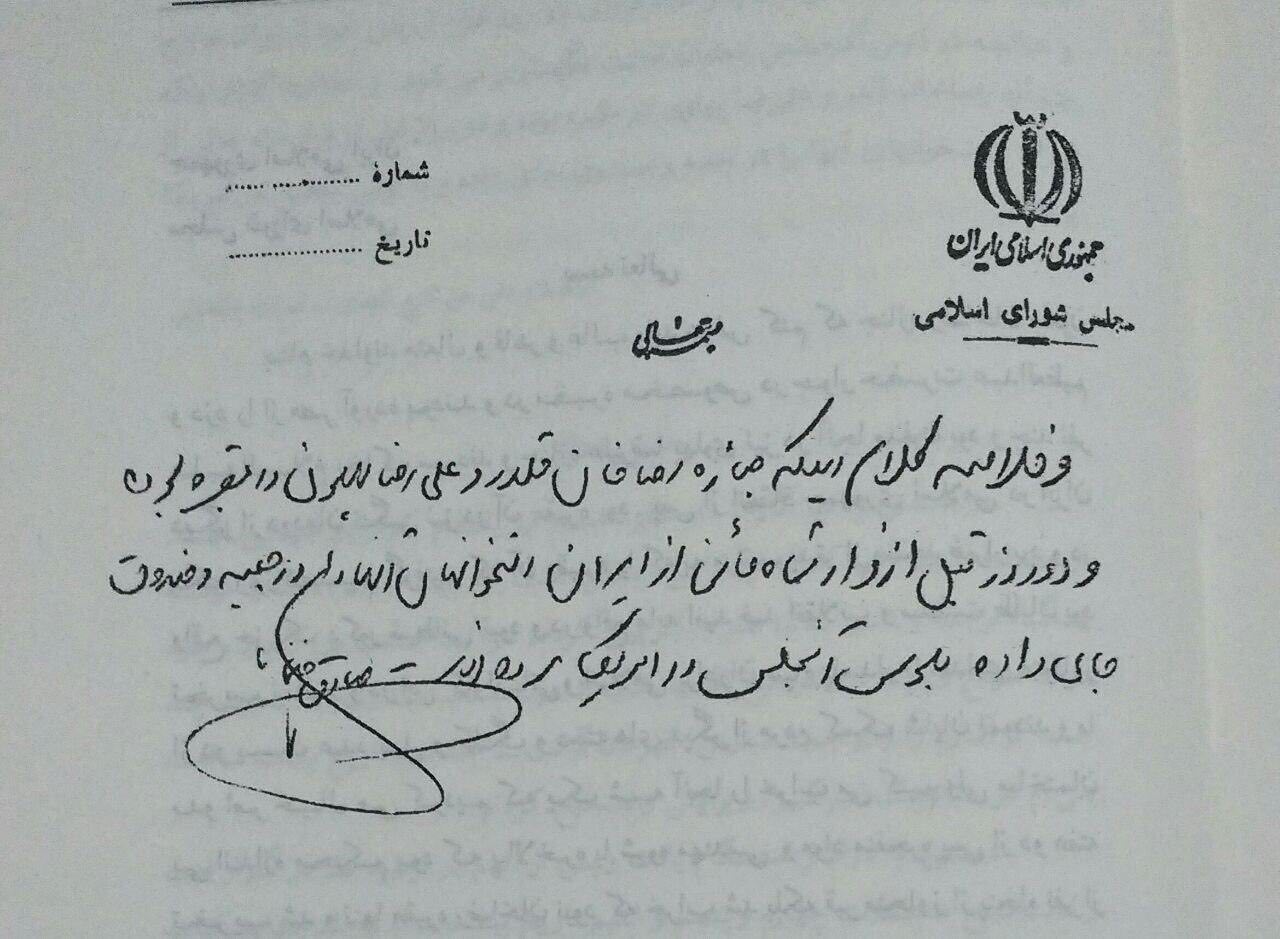 جمهوری اسلامی ایران
مجلس شورای اسلامی
شمارهٔ ....................
تاریخ ....................
بسمه تعالی
و خلاصه کلام اینکه جنازه رضا خان قلدر و علی رضا پهلوی در مقبره بوده
و دو روز قبل از فرار شاه خائن از ایران استخوانهای آنها را در جعبه و صندوق
جای داده بلوس آنجلس در امریکا برده است صادق خلخالی